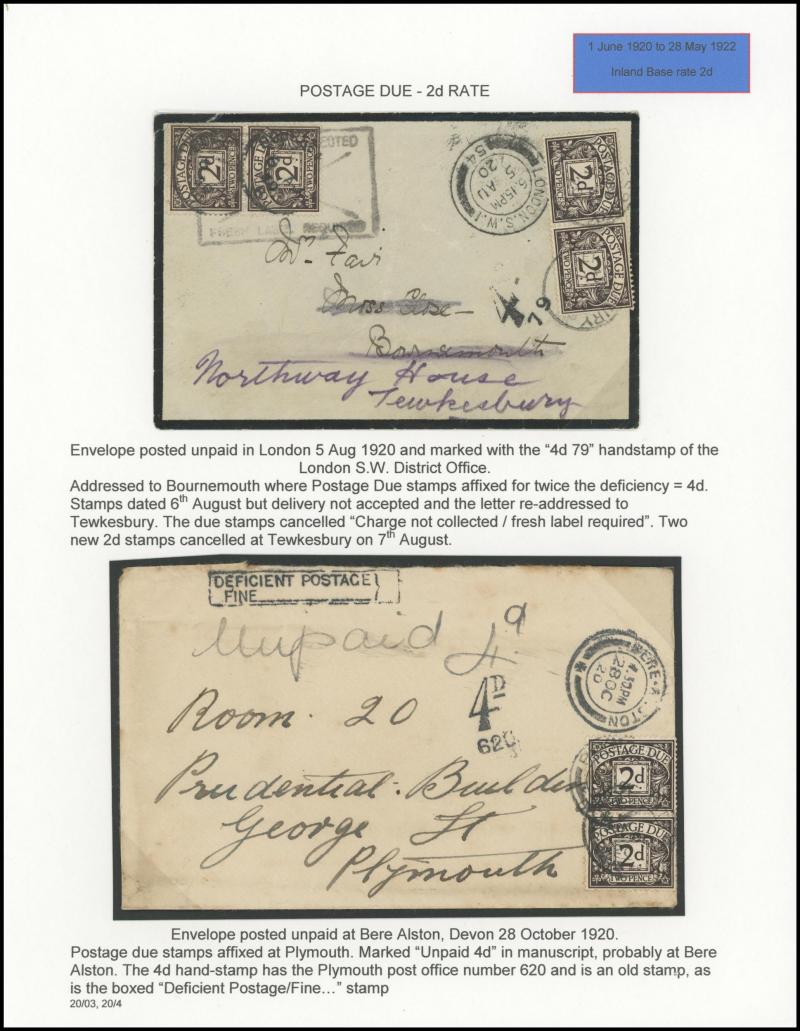 1 June 1920 to 28 May 1922
Inland Base rate 2d
POSTAGE DUE - 2d RATE
POSTAGE DUE
2d
TWO PENCE
POSTAGE DUE
2d
TWO PENCE
FRESH LABEL REQUIRED
LONDON.S.W.1
6.15PM
5 AU
20
54
POSTAGE DUE
2d
TWO PENCE
POSTAGE DUE
2d
TWO PENCE
Favi
Moss Close
4
79
Bournemouth
Northway House
Tewkesbury
Envelope posted unpaid in London 5 Aug 1920 and marked with the “4d 79” handstamp of the
London S.W. District Office.
Addressed to Bournemouth where Postage Due stamps affixed for twice the deficiency = 4d.
Stamps dated 6th August but delivery not accepted and the letter re-addressed to
Tewkesbury. The due stamps cancelled “Charge not collected / fresh label required”. Two
new 2d stamps cancelled at Tewkesbury on 7th August.
DEFICIENT POSTAGE
FINE
Unpaid 4d
4D
620
BERE-ALSTON
4.30PM
28 OC
20
Room 20
Prudential Buildin
George St
Plymouth
POSTAGE DUE
2d
TWO PENCE
POSTAGE DUE
2d
TWO PENCE
Envelope posted unpaid at Bere Alston, Devon 28 October 1920.
Postage due stamps affixed at Plymouth. Marked “Unpaid 4d” in manuscript, probably at Bere
Alston. The 4d hand-stamp has the Plymouth post office number 620 and is an old stamp, as
is the boxed “Deficient Postage/Fine…” stamp
20/03, 20/4